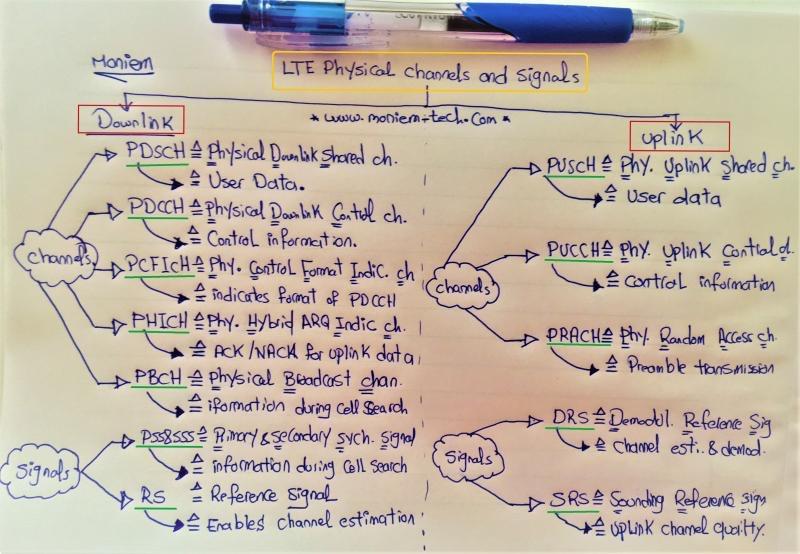 Moniem
LTE Physical channels and signals
* www.moniem-tech.com *
Downlink
PDSCH ≙ Physical Downlink Shared ch.
≙ User Data.
PDCCH ≙ Physical Downlink Control ch.
≙ Control information.
channels
PCFICH ≙ Phy. Control Format Indic. ch
≙ indicates format of PDCCH
PHICH ≙ Phy. Hybrid ARQ Indic ch.
≙ ACK/NACK for uplink data
PBCH ≙ Physical Broadcast chan.
≙ iformation during cell search
PSS&SSS ≙ Primary & secondary sych. signal
≙ information during cell search
Signals
RS ≙ Reference signal
≙ Enables channel estimation
uplink
PUSCH ≙ Phy. Uplink Shared ch.
≙ User data
PUCCH ≙ Phy. Uplink Control ch.
≙ Control information
channels
PRACH ≙ Phy. Random Access ch.
≙ Preamble transmission
DRS ≙ Demodul. Reference Sig
≙ channel esti. & demod.
Signals
SRS ≙ Sounding Reference sign
≙ uplink channel quality.